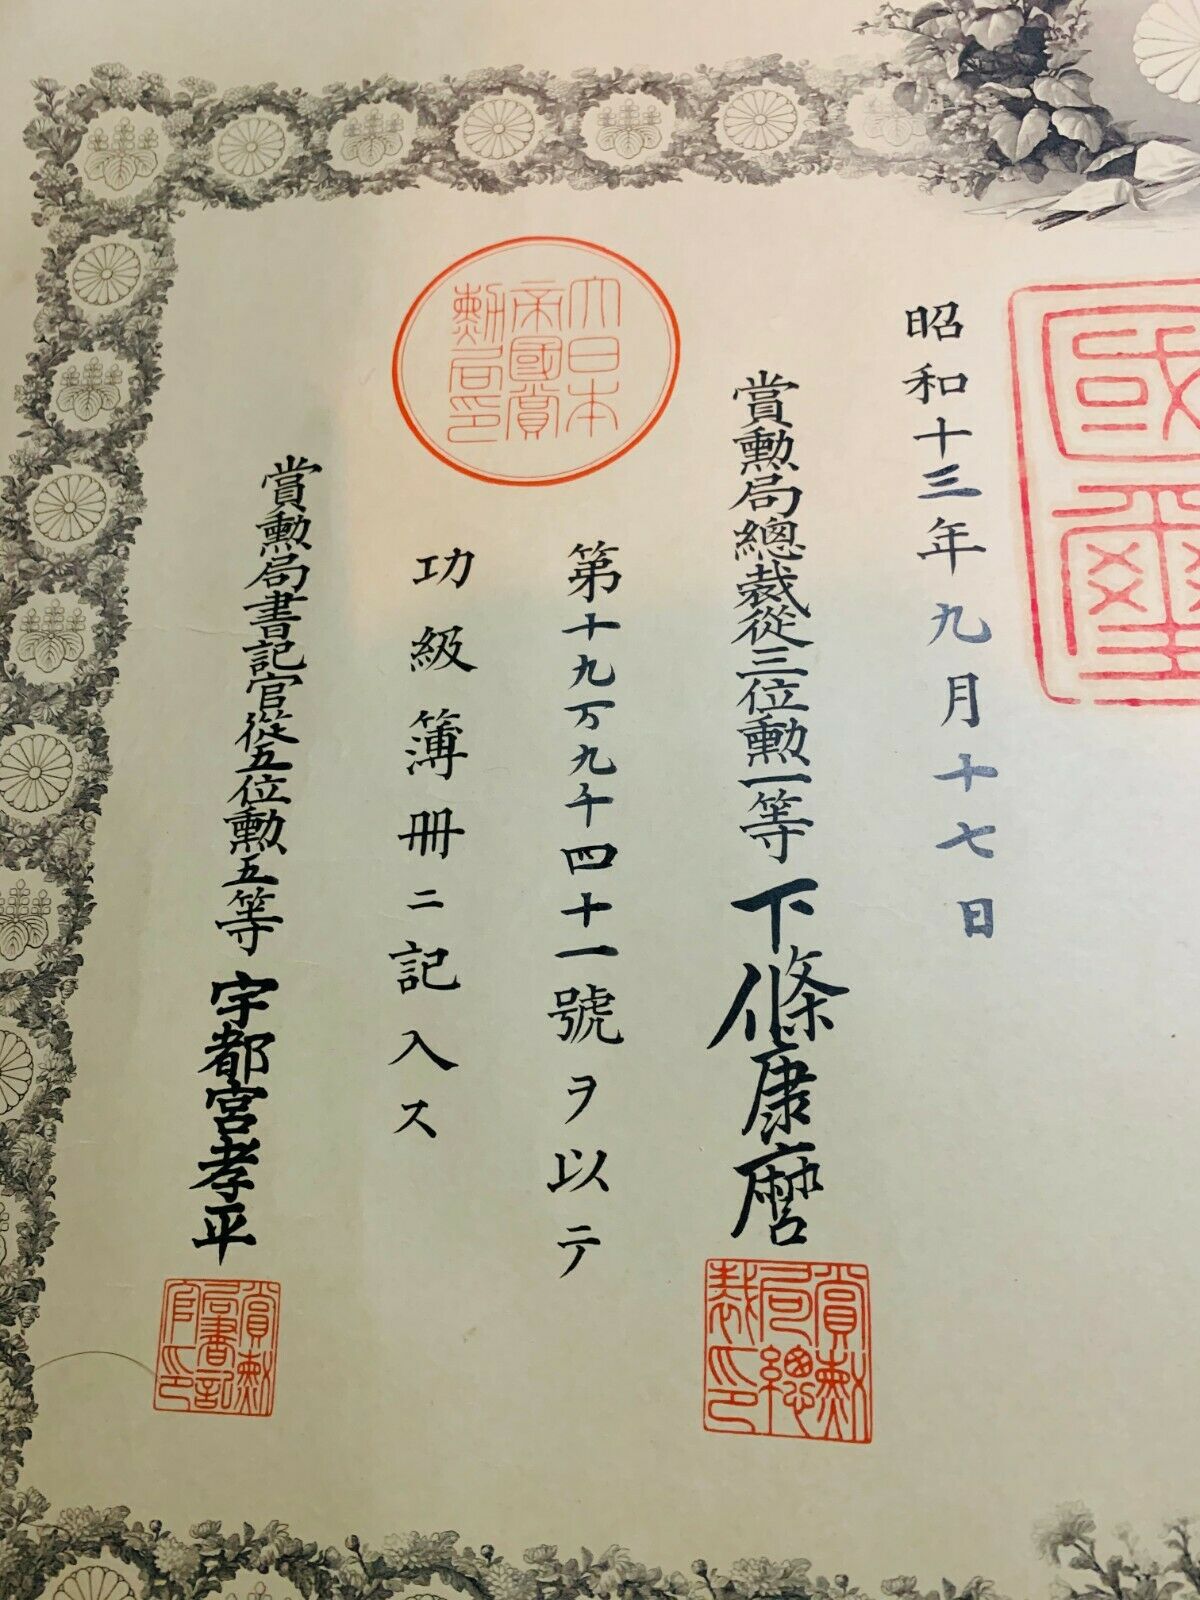 國璽
昭和十三年九月十七日
賞勲局總裁從三位勲一等下條康麿
賞勲局總裁印
大日本帝國賞勲局印
第十九万九千四十一號ヲ以テ
功級簿冊ニ記入ス
賞勲局書記官從五位勲五等宇都宮孝平
賞勲局書記官印